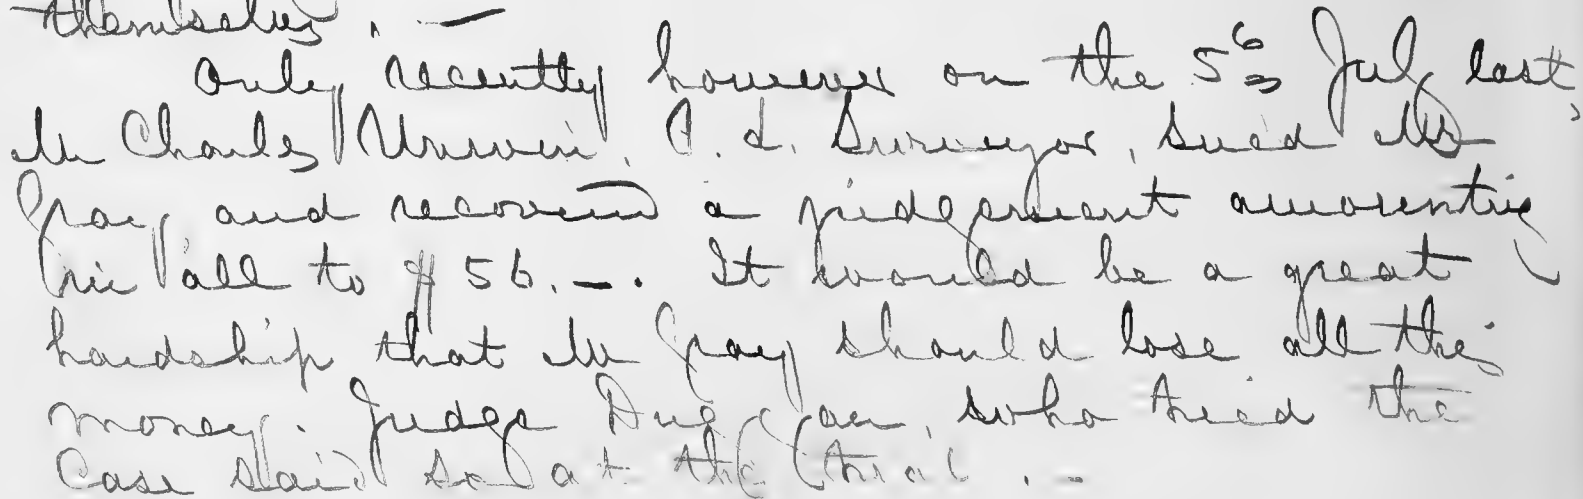 themselves. —
Only recently however on the 5th July last,
Mr Charles Unwin, P. L. Surveyor, sued Mr
Gray and recovered a judgement amounting
in all to $56.—. It would be a great
hardship that Mr Gray should lose all this
money. Judge Duggan, who tried the
Case said so at the trial. -